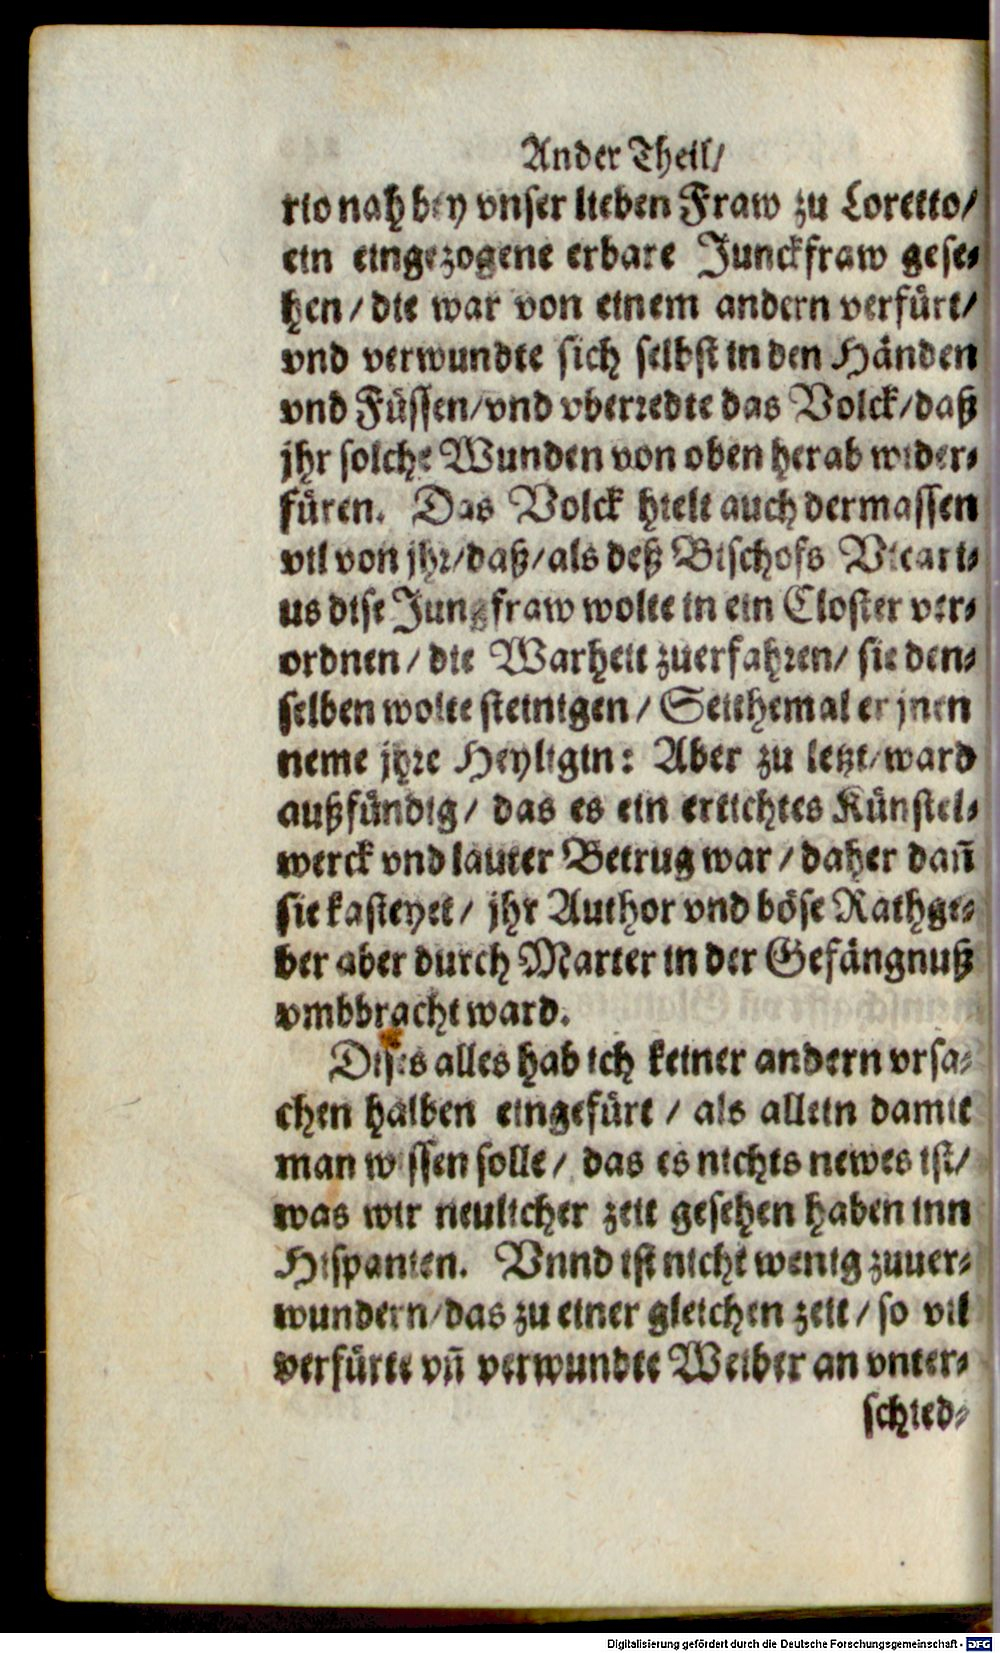 Ander Theil/
rio nah bey vnser lieben Fraw zu Loretto/
ein eingezogene erbare Junckfraw gese⸗
hen / die war von einem andern verfürt/
vnd verwundte sich selbst in den Händen
vnd Füssen/vnd vberredte das Volck/daß
jhr solche Wunden von oben herab wider⸗
füren. Das Volck hielt auch dermassen
vil von jhr/daß/als deß Bischofs Vicari⸗
us dise Jungfraw wolte in ein Closter ver⸗
ordnen / die Warheit zuerfahren/ sie den⸗
selben wolte steinigen / Seithemal er jnen
neme jhre Heyligin: Aber zu letzt/ward
außfündig/ das es ein ertichtes Künstel⸗
werck vnd lauter Betrug war / daher dañ
sie kasteyet/ jhr Author vnd böse Rathge⸗
ber aber durch Marter in der Gefängnuß
vmbbracht ward.
Dises alles hab ich keiner andern vrsa⸗
chen halben eingefürt / als allein damit
man wissen solle/ das es nichts newes ist/
was wir neulicher zeit gesehen haben inn
Hispanien. Vnnd ist nicht wenig zuuer⸗
wundern/das zu einer gleichen zeit / so vil
verfürte vñ verwundte Weiber an vnter⸗
schied⸗
Digitalisierung gefördert durch die Deutsche Forschungsgemeinschaft - DFG